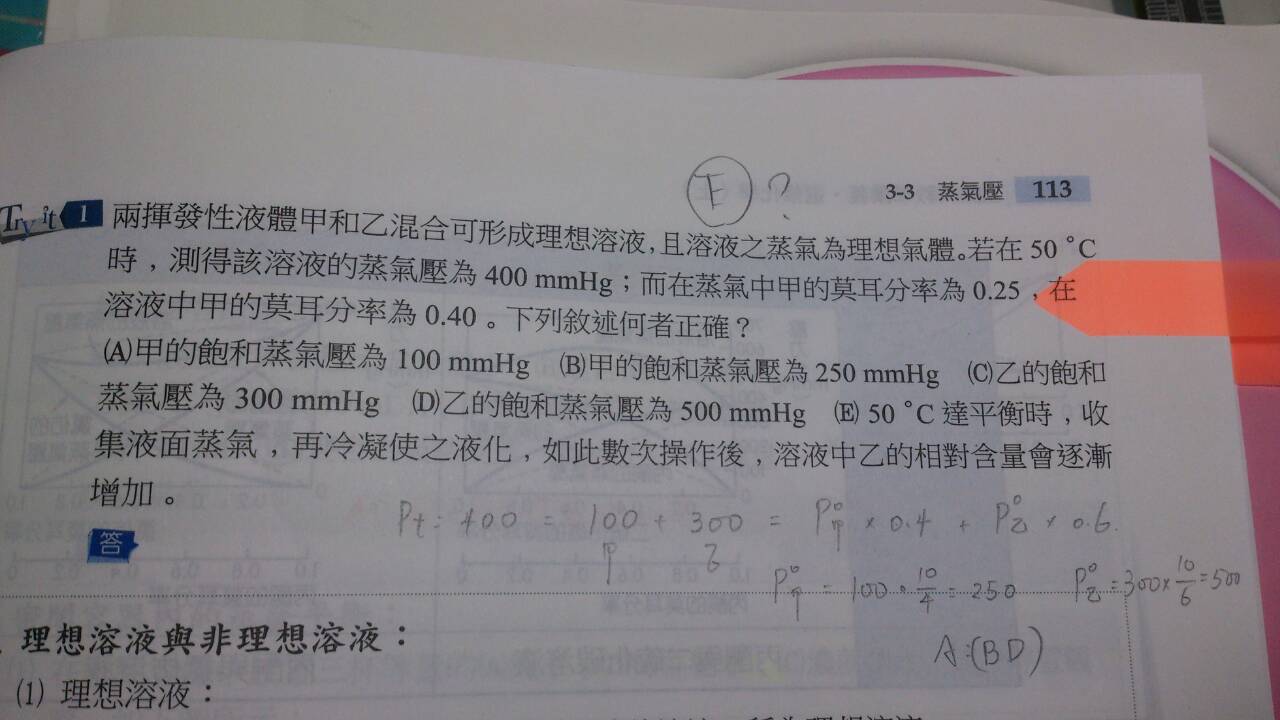 E ?
3-3 蒸氣壓 113
Try it 1 兩揮發性液體甲和乙混合可形成理想溶液,且溶液之蒸氣為理想氣體。若在 50 °C
時,測得該溶液的蒸氣壓為 400 mmHg;而在蒸氣中甲的莫耳分率為 0.25,在
溶液中甲的莫耳分率為 0.40。下列敘述何者正確?
(A)甲的飽和蒸氣壓為 100 mmHg (B)甲的飽和蒸氣壓為 250 mmHg (C)乙的飽和
蒸氣壓為 300 mmHg (D)乙的飽和蒸氣壓為 500 mmHg (E) 50 °C 達平衡時,收
集液面蒸氣,再冷凝使之液化,如此數次操作後,溶液中乙的相對含量會逐漸
增加。
Pt = 400 = 100 + 300 = P°甲 × 0.4 + P°乙 × 0.6
甲 乙
答
P°甲 = 100 · 10/4 = 250 P°乙 = 300 × 10/6 = 500
A:(BD)
理想溶液與非理想溶液:
(1) 理想溶液: